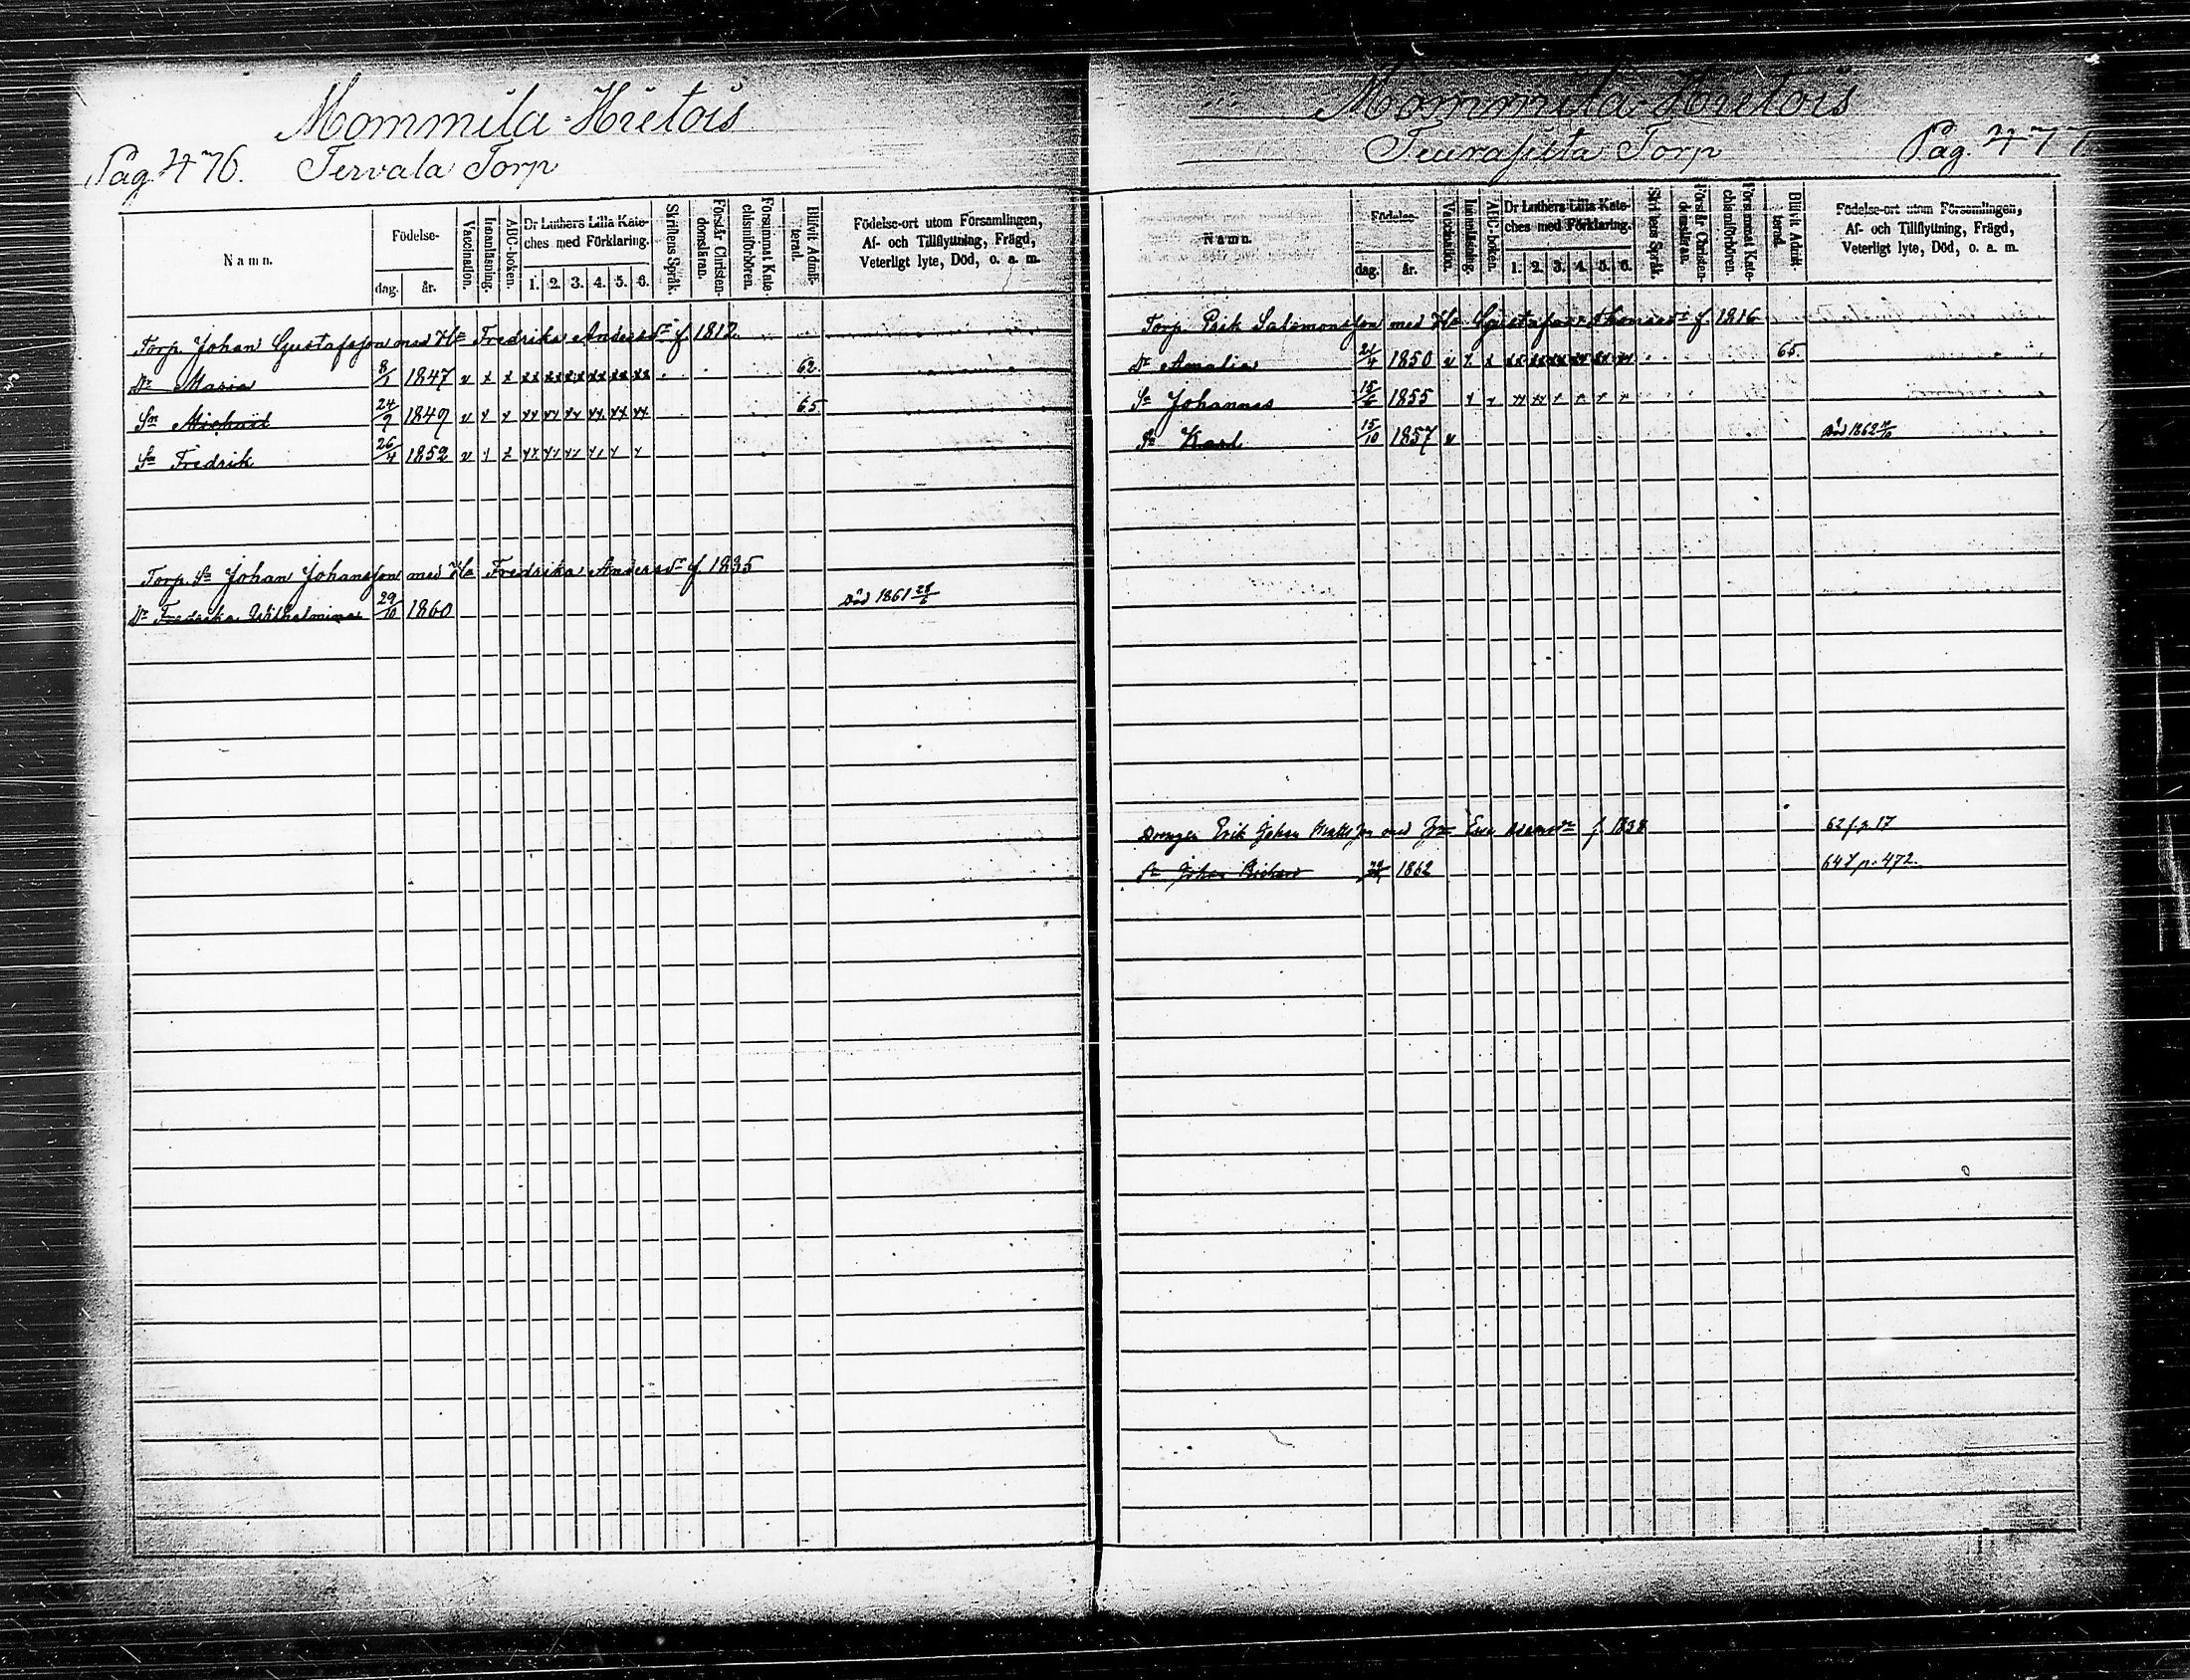 Mommila-Hietois
Pag. 476. Tervala Torp
Namn.
Födelse-
dag. år.
Vaccination.
Innanläsning.
ABC-boken.
Dr Luthers Lilla Kate-
ches med Förklaring.
1. 2. 3. 4. 5. 6.
Skriftens Språk.
Förstår Christen-
domsläran.
Försummat Kate-
chismiförhören.
Blifvit Admit-
terad.
Födelse-ort utom Församlingen,
Af- och Tillflyttning, Frägd,
Veterligt lyte, Död, o. a. m.
Torp. Johan Gustafsson med Ha Fredrika Andersdr f. 1812.
Dr Maria 8/1 1847 v x x xx xx xx xx xx xx 62.
Sn Michael 24/9 1849 v x x xx xx xx xx xx xx 65
Sn Fredrik 26/4 1852 v x x xx xx xx xx x x
Torp. Sn Johan Johansson med Ha Fredrika Andersdr f. 1835
Dr Fredrika Wilhelmina 29/10 1860 Död 1861 28/6
Mommila-Hietois
Torp Pag. 477
Namn.
Födelse-
dag. år.
Vaccination.
Innanläsning.
ABC-boken.
Dr Luthers Lilla Kate-
ches med Förklaring.
1. 2. 3. 4. 5. 6.
Skriftens Språk.
Förstår Christen-
domsläran.
Försummat Kate-
chismiförhören.
Blifvit Admit-
terad.
Födelse-ort utom Församlingen,
Af- och Tillflyttning, Frägd,
Veterligt lyte, Död, o. a. m.
Torp. Erik Salomonsson med Ha Gustafva f. 1816
Dr Amalia 21/4 1850 v x x xx xx xx xx xx xx 65.
Sn Johannes 15/6 1855 x x xx xx x x x x
Sn Karl 15/10 1857 v Död 1862
Drengen Erik Johan Mattsson med Eva Adamsdr f. 1838 62 f. p. 17
Sn Johan Richard 1862 64 t p. 472.